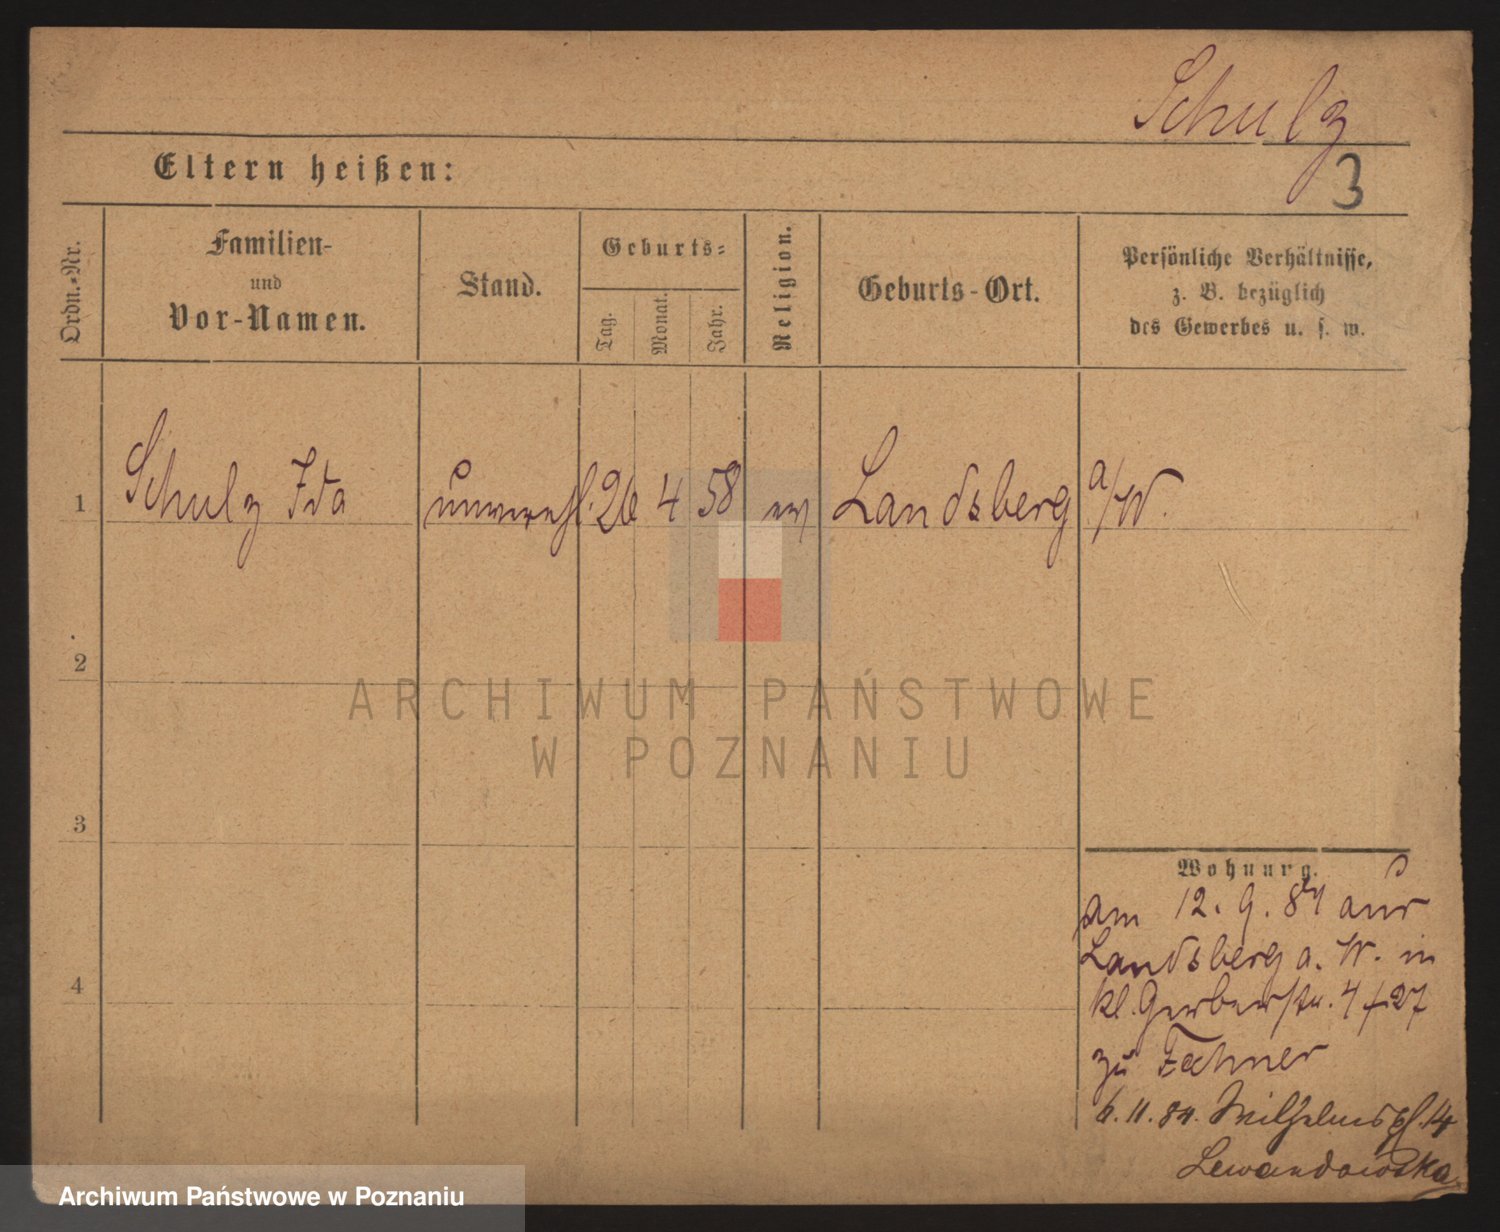 Schulz
Eltern heißen:
3
Ordn.-Nr.
Familien-
und
Vor-Namen.
Stand.
Geburts-
Tag.
Monat.
Jahr.
Religion.
Geburts-Ort.
Persönliche Verhältnisse,
z. B. bezüglich
des Gewerbes u. s. w.
1 Schulz Ida unverehl. 26 4 58 ev Landsberg a/W.
2
3
4
Wohnung.
am 12. 9. 84 aus
Landsberg a. W. in
kl. Gerberstr. 4
zu
6. 11. 84. Wilhelmspl. 14
Lewandowska
ARCHIWUM PAŃSTWOWE
W POZNANIU
Archiwum Państwowe w Poznaniu